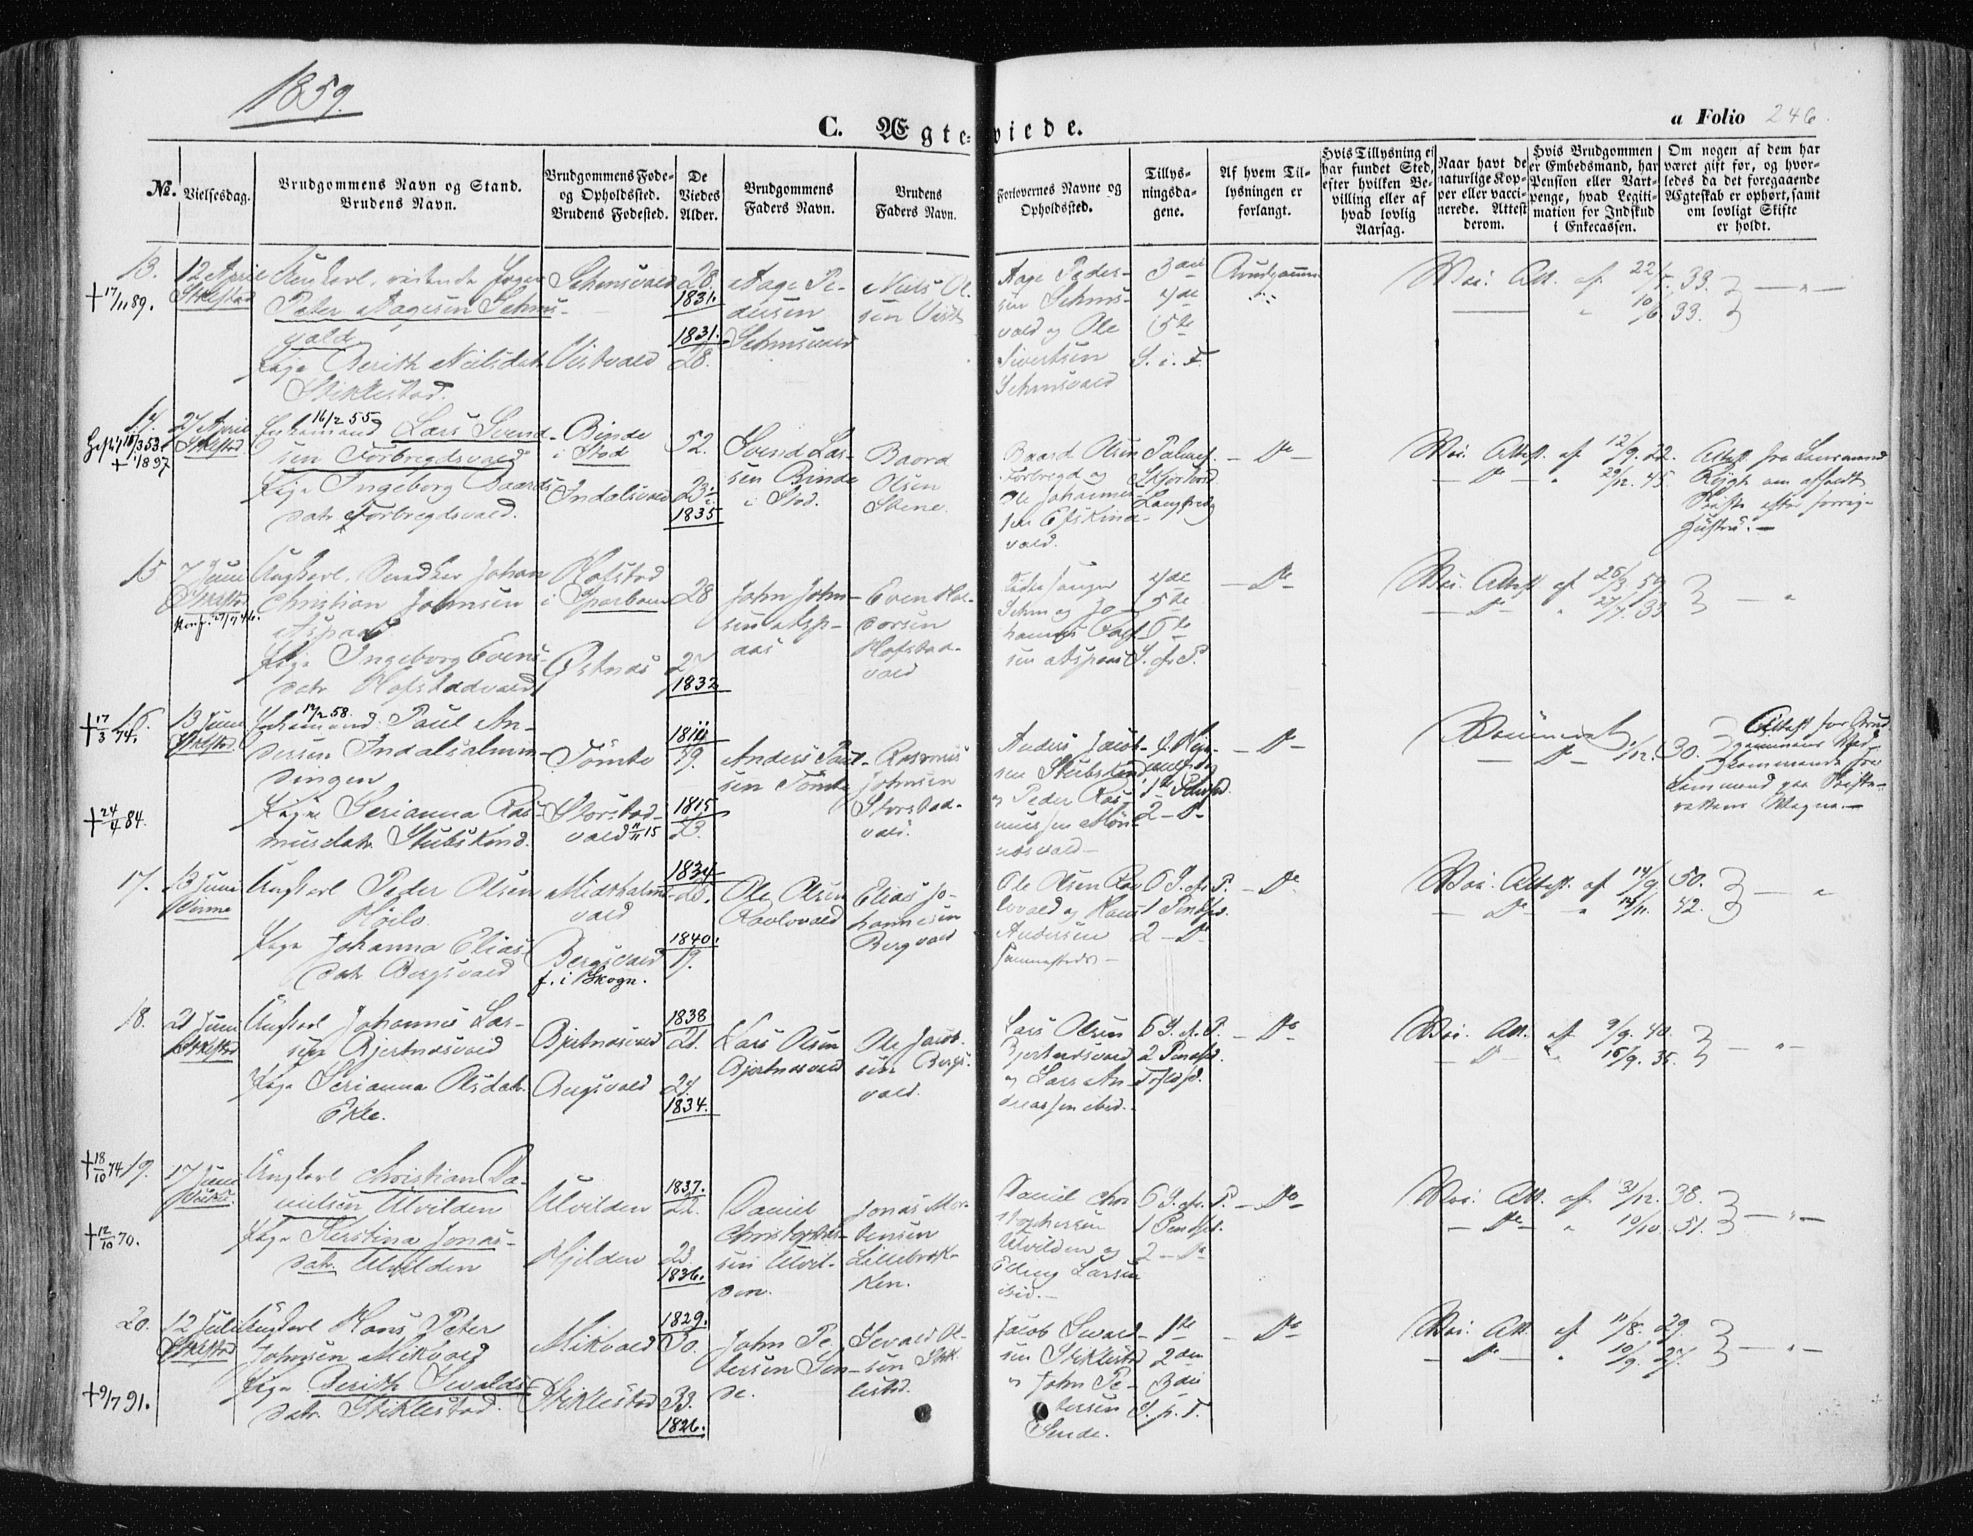 1859.
C. Ægteviede.
a Folio 246.
No.
Vielsesdag.
Brudgommens Navn og Stand.
Brudens Navn.
Brudgommens Føde-
og Opholdssted.
Brudens Fødested.
De
Viedes
Alder.
Brudgommens
Faders Navn.
Brudens
Faders Navn.
Forlovernes Navne og
Opholdssted.
Tillys-
ningsda-
gene.
Af hvem Til-
lysningen er
forlangt.
Hvis Tillysning ei
har fundet Sted,
efter hvilken Be-
villing eller af
hvad lovlig
Aarsag.
Naar havt de
naturlige Kop-
per eller vacci-
nerede. Attest
derom.
Hvis Brudgommen
er Embedsmand, har
Pension eller Vart-
penge, hvad Legiti-
mation for Indskud
i Enkecassen.
Om nogen af dem har
været gift før, og hvor-
ledes da det foregaaende
Ægteskab er ophørt, samt
om lovligt Skifte
er holdt.
13.
† 17/11 89.
12 April
Stklestad
Ungkarl, ridende Jæger
Peter Aagesen Sehms-
vald
Pige Berith Nielsdatr
Stiklestad.
Sehmsvald
Vistvald
28.
1831.
1831.
28.
Aage Pe-
dersen
Sehmsvald
Niels Ol-
sen Vist
Aage Peder-
sen Sehms-
vald og Ole
Sivertsen
Sehmsvald
3die
4de
5te
S. i. F.
Brudgommen
Vac. Att. af 22/5. 33.
" 10/6. 33.
14.
† 1/8 97
27 April
Stklestad
16/2 55
Enkemand Lars Svend-
sen Forbregdsvald
Pige Ingeborg Baards-
datr Forbregdsvald.
Binde
i Stod
Indalsvald
52.
23 1/2
1835
Svend Lar-
sen Binde
i Stod.
Baard
Olsen
Stene.
Baard Olsen
Forbregd og
Ole Johannes-
sen Efskind-
vald.
Palmes.
Skjertorsd
Langfredag
– Do –
Vac. Attest af 12/9. 22.
– Do – " 29/12. 45.
Attest fra Lensmand
om afholdt
Skifte efter forrige
Hustru. –
15
7 Juni
Stklestad
Konf. 27/7 46.
Ungkarl, Snedker Johan
Christian Johnsen
Aspaas
Pige Ingeborg Evens-
datr Hofstadvald
Hofstad
i Sparboen
Østnæs
28
27
1832
John John-
sen Asp-
aas
Even Hal-
dorsen
Hofstad-
vald
4de
5te
6te
S. af P.
– Do
Vac. Attest af 25/3. 59.
– Do – " 27/7. 33
16.
† 17/3 74.
† 24/4 84.
13 Juni
Stklestad.
12/2 58.
Enkemand Paul An-
dersen Indalsalmin-
dingen
Pige Serianna Ras-
musdatr Stubskind.
Tømte
Storstad-
vald 11/11 15
49.
1815
23.
Anders Paul-
sen Tømte
Rasmus
Johnsen
Storstad-
vald.
Anders Jacob-
sen Stubskind
og Peder Ras-
mussen
2 – D
– Do –
Vaccineret
– Do – 1/12. 30.
17.
13 Juni
Vinne
Ungkarl Peder Olsen
Hoelo
Pige Johanna Elias-
datr Bergsvald
Midtholm-
vald
Bergsvald
f. i Skogn.
1834
1840.
19.
Ole Olsen
Elias Jo-
hannesen
Bergvald
Andersen
6 S. af P.
1 Pindsd.
2 – D
– Do
Vac. Attest af 14/9. 50.
– Do – " 14/11. 42.
18.
21 Juni
Stklestad
Ungkarl Johannes Lar-
sen Bjertnæsvald
Pige Serianna Olsdatr
Ekle.
Bjertnæsvald
Bergsvald
1838
21.
24
1834.
Lars Olsen
Bjertnæsvald
Ole Jacob-
sen Bergs-
vald.
Lars Olsen
Bjertnæsvald
og Lars An-
dreassen ibid.
6 S. af P.
2 Pindsd.
Trefsd.
– Do
Vac. Att. af 9/9. 40.
– Do – 15/9. 35.
19.
† 18/10 74
† 12/10 70.
17 Juni
Ungkarl Christian Da-
nielsen Ulvilden
Pige Kerstina Jonas-
datr Ulvilden
Ulvilden
Hjelden
1837.
22.
23
1836.
Daniel
Christophers-
sen Ulvil-
den.
Jonas Mor-
tensen
Lillebrek-
ken.
Daniel Chri-
stophersen
Ulvilden og
Elling Larsen
ibid. –
6 S. af P.
1 Pindsd.
2 – Do
– Do
Vac. Att. af 31/12. 38.
– Do – " 19/10. 51.
20.
† 9/7 91.
12 Juli
Stklestad
Ungkarl Hans Peter
Johnsen Mikvold
Pige Berith Sevalds-
datr Stiklestad.
Mikvold
Stiklestad
1829.
30.
33.
1826.
John Pe-
tersen Sen-
de.
Sevald Ol-
sen Stik-
lestad.
Jacob Sevald-
sen Stiklestad
og John Pe-
tersen
Sende.
1ste
2den
3die
S. p. T.
– Do
Vac. Att. af 11/8. 29.
– Do – " 10/9. 27.